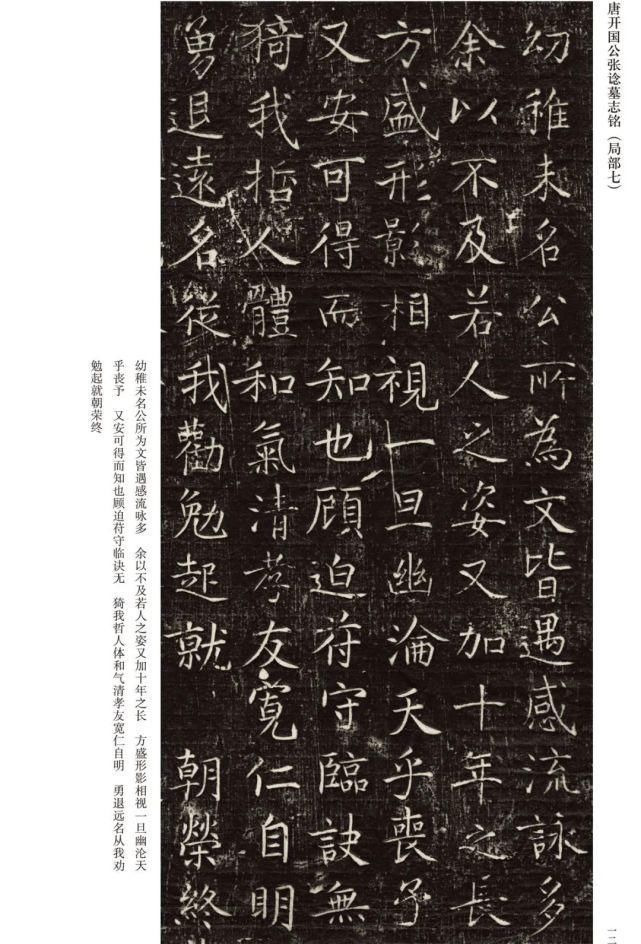 唐开国公张谂墓志铭（局部七）
幼稚未名公所為文皆遇感流詠多
余以不及若人之姿又加十年之長
方盛形影相視一旦幽淪天乎喪予
又安可得而知也顧迫苻守臨訣無
猗我哲人體和氣清孝友寬仁自明
勇退遠名從我勸勉起就 朝榮終
幼稚未名公所为文皆遇感流咏多 余以不及若人之姿又加十年之长 方盛形影相视一旦幽沦天
乎丧予 又安可得而知也顾迫苻守临诀无 猗我哲人体和气清孝友宽仁自明 勇退远名从我劝
勉起就朝荣终